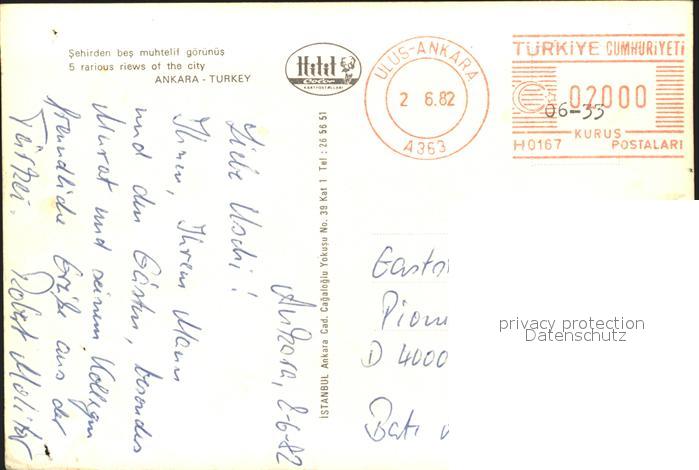 Şehirden beş muhtelif görünüş
5 rarious riews of the city
ANKARA - TURKEY
Hitit
Color
KARTPOSTALLARI
ULUS-ANKARA
2 6.82
A363
TÜRKİYE CUMHURİYETİ
02000
06-35
KURUŞ
H0167 POSTALARI
İSTANBUL Ankara Cad. Cağaloğlu Yokuşu No. 39 Kat 1 Tel : 26 56 51
Ankara, 2-6-82
Liebe Uschi!
Ihnen, Ihrem Mann
und den Gästen, besonders
Murat und seinem Kollegen
freundliche Grüße aus der
Türkei.
Robert Molitor
Gastst
Pion
D 4000
privacy protection
Datenschutz